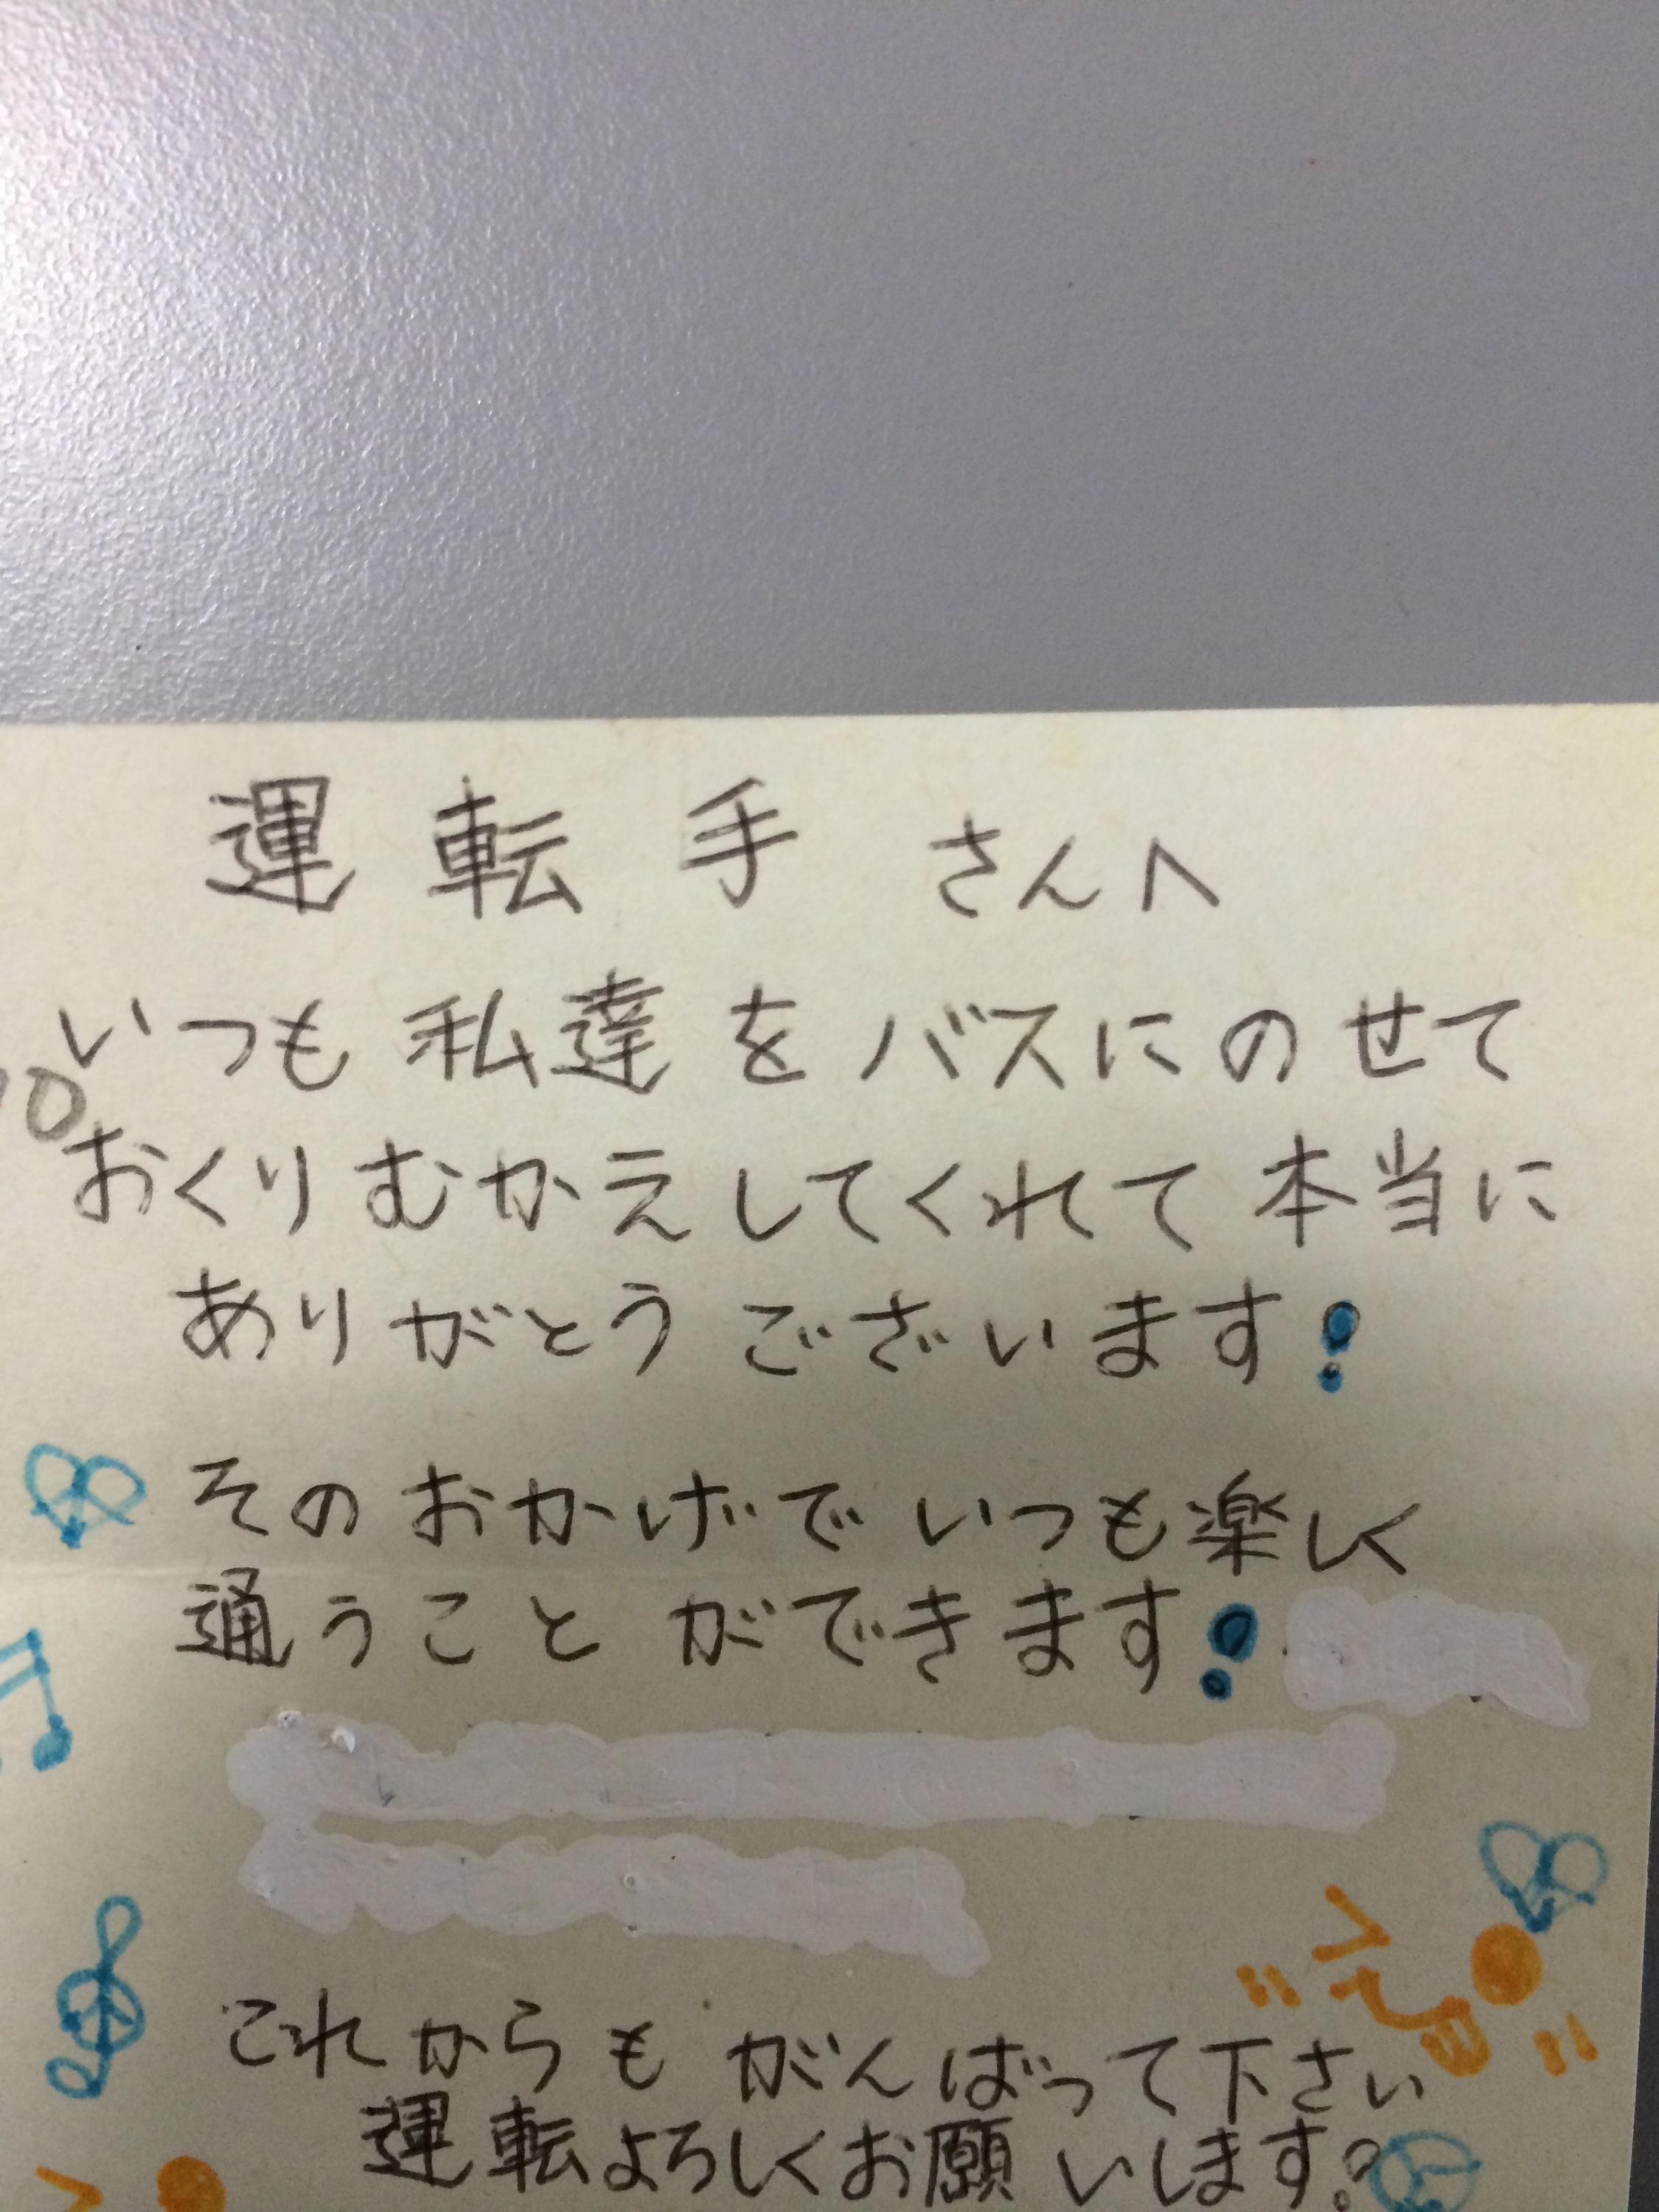 運転手さんへ
いつも私達をバスにのせて
おくりむかえしてくれて本当に
ありがとうございます!
そのおかげでいつも楽しく
通うことができます!
これからもがんばって下さい
運転よろしくお願いします!